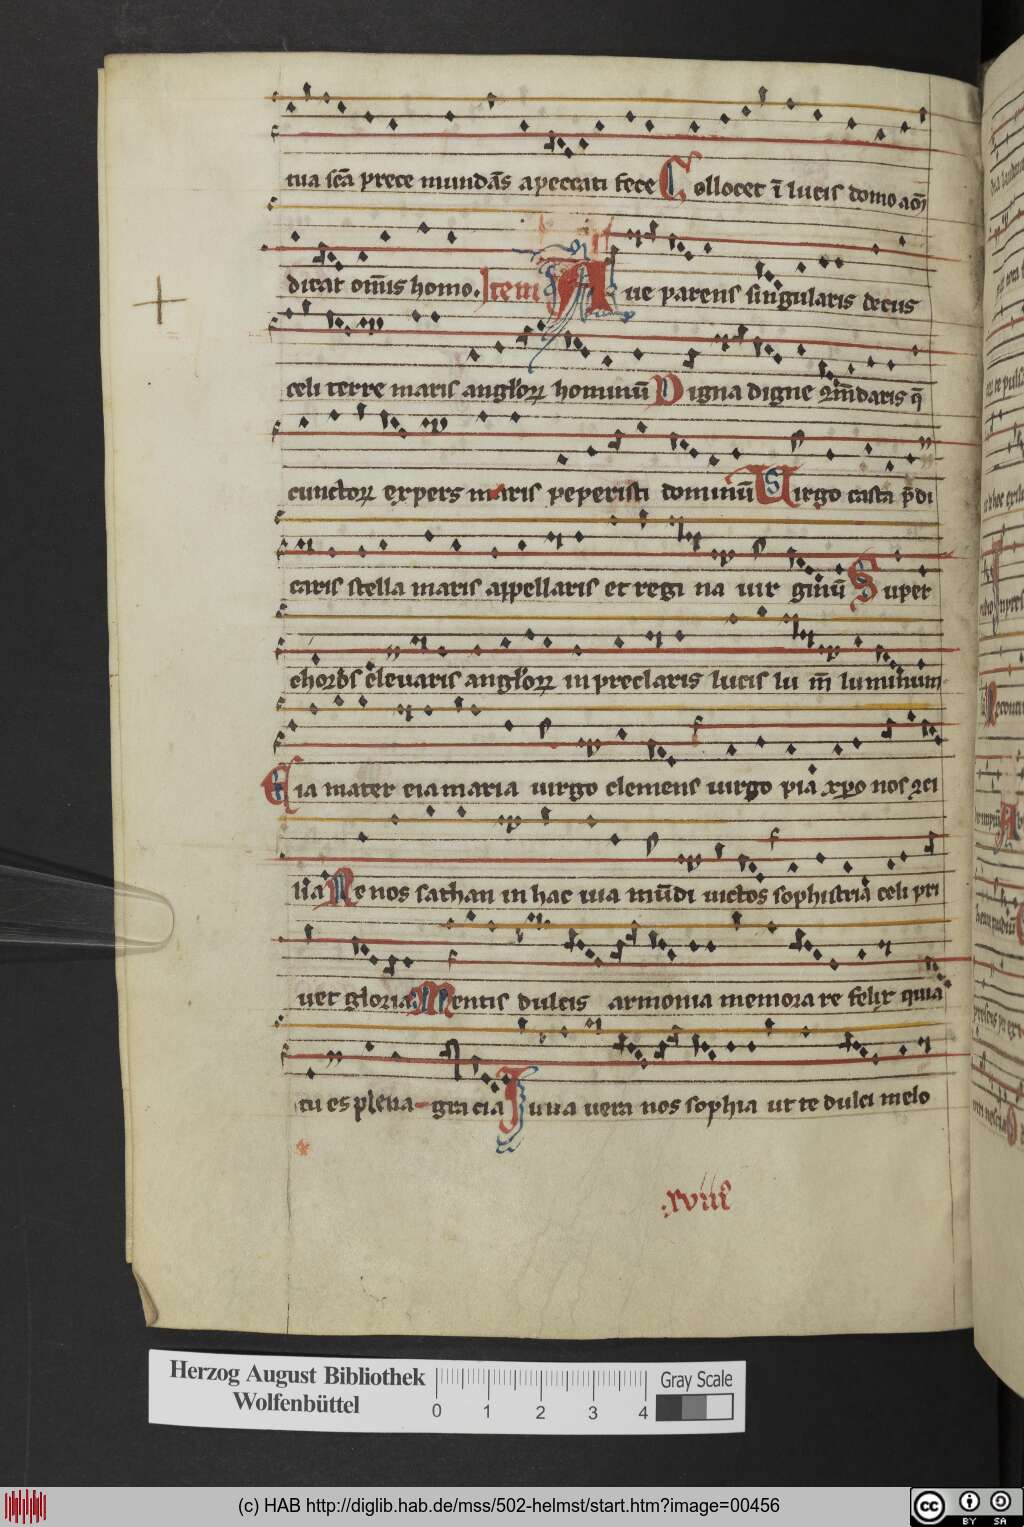 tua sc̄a prece mundās a peccati fece Collocet ī lucis domo a oō
dicat om̄is homo. Item Aue parens singularis decus
celi terre maris angloꝝ hominū Digna digne ꝯm̄daris q̄
cunctoꝝ expers maris peperisti dominū Uirgo casta p̄di
caris stella maris appellaris et regi na uir ginū Super
choros eleuaris angloꝝ in preclaris lucis lu m̄ luminum
Eia mater eia maria uirgo clemens uirgo pia xp̄o nos ꝯci
lia Ne nos sathan in hac uia mūdi uictos sophistria celi pri
uet gloria Mentis dulcis armonia memora re felix quia
tu es plena gra cia Iuua uera nos sophia ut te dulci melo
.xviii⁹
Herzog August Bibliothek
Wolfenbüttel
0 1 2 3 4
Gray Scale
(c) HAB http://diglib.hab.de/mss/502-helmst/start.htm?image=00456
cc BY SA